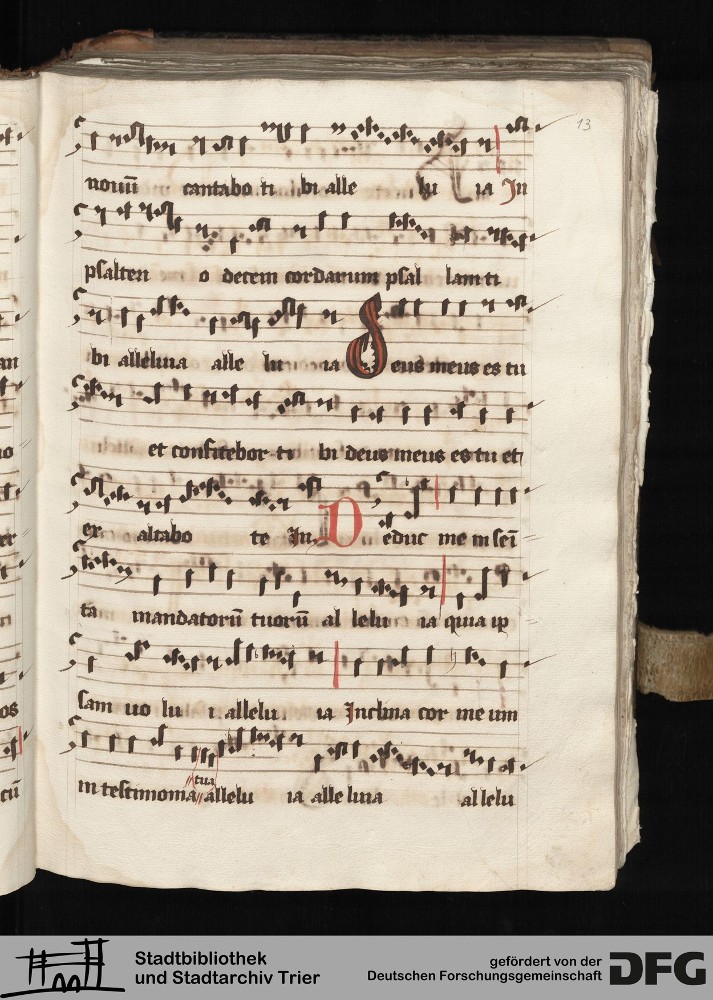 13
nouū cantabo ti bi alle lu ia In
psalteri o decem cordarum psal lam ti
bi alleluia alle lu ia Deus meus es tu
et confitebor ti bi deus meus es tu et
ex altabo te In Deduc me in sei
ta mandatorū tuorū al lelu ia quia ip
sam uo lu i allelu ia Inclina cor me um
in testimonia tua allelu ia alle luia al lelu
Stadtbibliothek
und Stadtarchiv Trier
gefördert von der
Deutschen Forschungsgemeinschaft
DFG